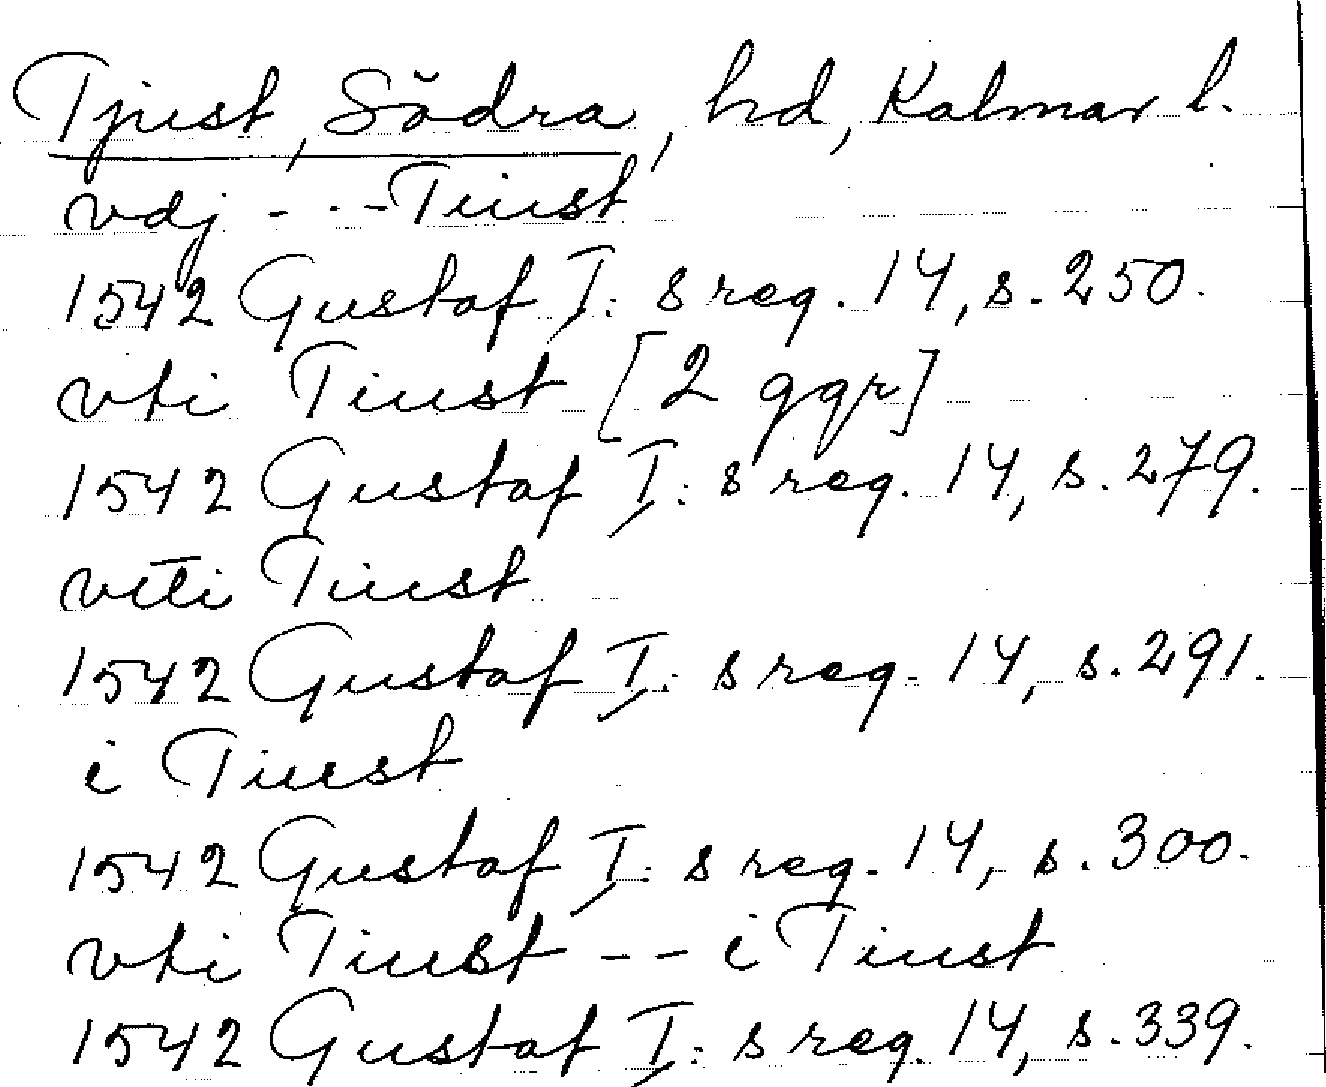 Tjust, Södra, hd, Kalmar l.
vdj - - - Tiust
1542 Gustaf I: s reg. 14, s. 250.
vti Tiust [2 ggr]
1542 Gustaf I: s reg. 14, s. 279.
vtti Tiust
1542 Gustaf I: s reg. 14, s. 291.
i Tiust
1542 Gustaf I: s reg. 14, s. 300.
vti Tiust - - i Tiust
1542 Gustaf I: s reg. 14, s. 339.